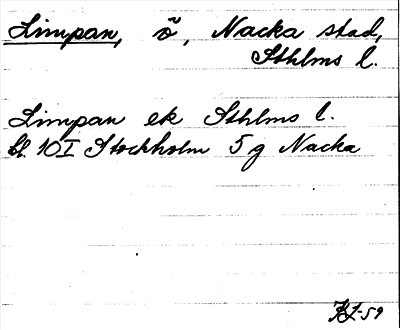 Limpan, ö, Nacka stad,
Sthlms l.
Limpan ek Sthlms l.
bl. 10I Stockholm 5 g Nacka